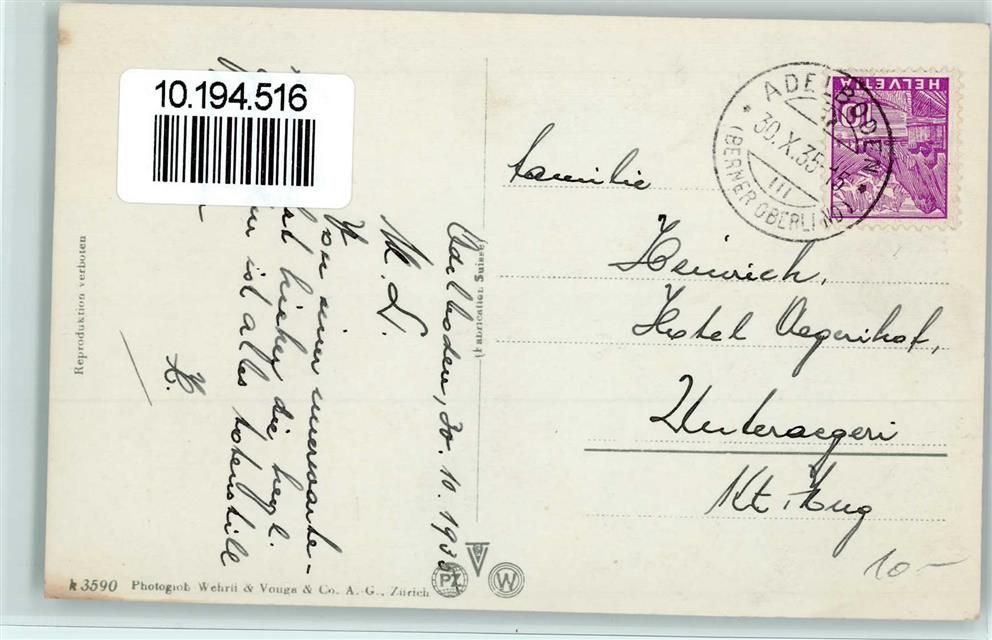 10.194.516
Adelboden, 30. 10. 1935
M. L.
Von einer unerwarte-
hieher die herzl.
ist alles totenstill
H.
Familie
Heinrich,
Hotel Aegerihof,
Unteraegeri
Kt. Zug
10 —
HELVETIA
ADELBODEN
30.X.35-15
III
(BERNER OBERLAND)
Reproduktion verboten
(Fabrication Suisse)
k 3590 Photoglob Wehrli & Vouga & Co. A.-G., Zürich
PZ
W